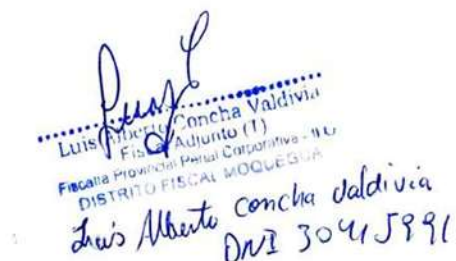 Luis Alberto Concha Valdivia
Fiscal Adjunto (T)
Fiscalía Provincial Penal Corporativa - ILO
DISTRITO FISCAL MOQUEGUA
Luis Alberto concha valdivia
DNI 30415991